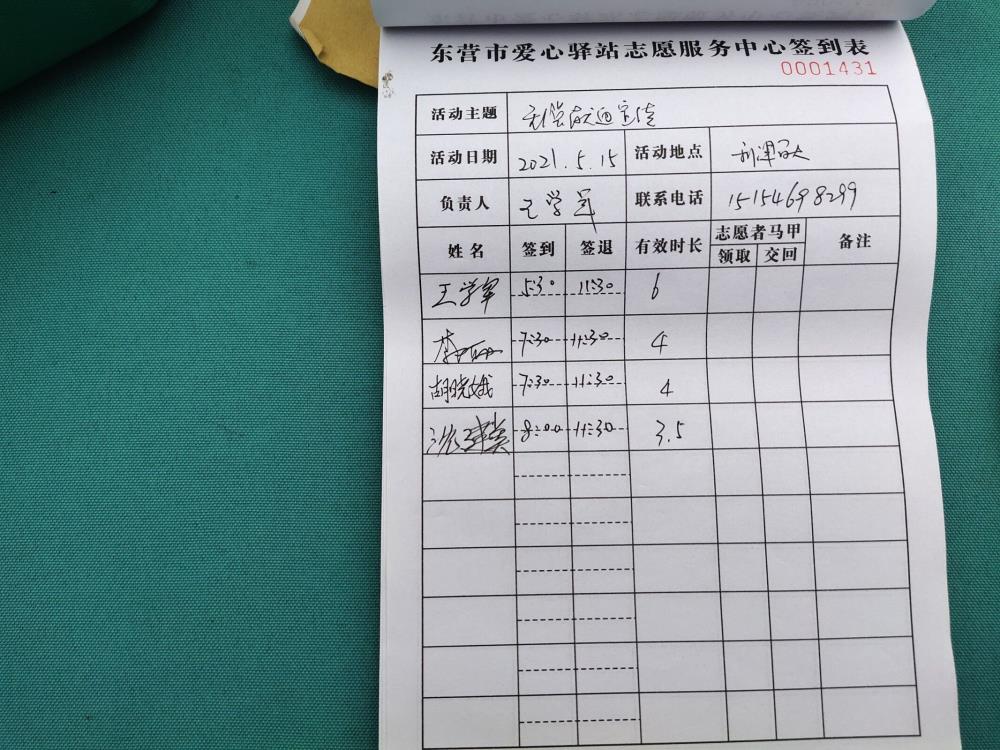 东营市爱心驿站志愿服务中心签到表
0001431
活动主题 无偿献血宣传
活动日期 2021.5.15 活动地点 利津
负责人 王学军 联系电话 15154698299
姓名 签到 签退 有效时长 志愿者马甲 备注
领取 交回
王学军 5:30 11:30 6
7:30 11:30 4
胡晓娥 7:30 11:30 4
8:00 11:30 3.5